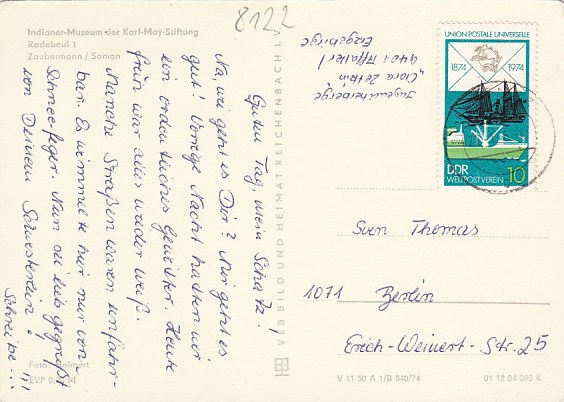 8122
Indianer-Museum der Karl-May-Stiftung
Radebeul 1
Zaubermann / Saman
Guten Tag, mein Schatz!
Na, wie geht es Dir? Mir geht es
gut! Vorige Nacht hatten wir
ein ordentliches Gewitter. Heute
früh war alles wieder weiß.
Manche Straßen waren unfahr-
bar. Es wimmelte hier nur von
Schnee-feger. Nun sei lieb gegrüßt
von Deinem Schwesterlein!
Schreibe...!!!
Foto:
EVP 0, M
VEB BILD UND HEIMAT REICHENBACH I. V.
Jugendherberge
"Clara Zetkin"
9401 Affalter
Erzgebirge
UNION POSTALE UNIVERSELLE
1874 1974
DDR
WELTPOSTVEREIN 10
Sven Thomas
1071 Berlin
Erich-Weinert-Str. 25
V 11 50 A 1/B 840/74 01 12 04 080 K